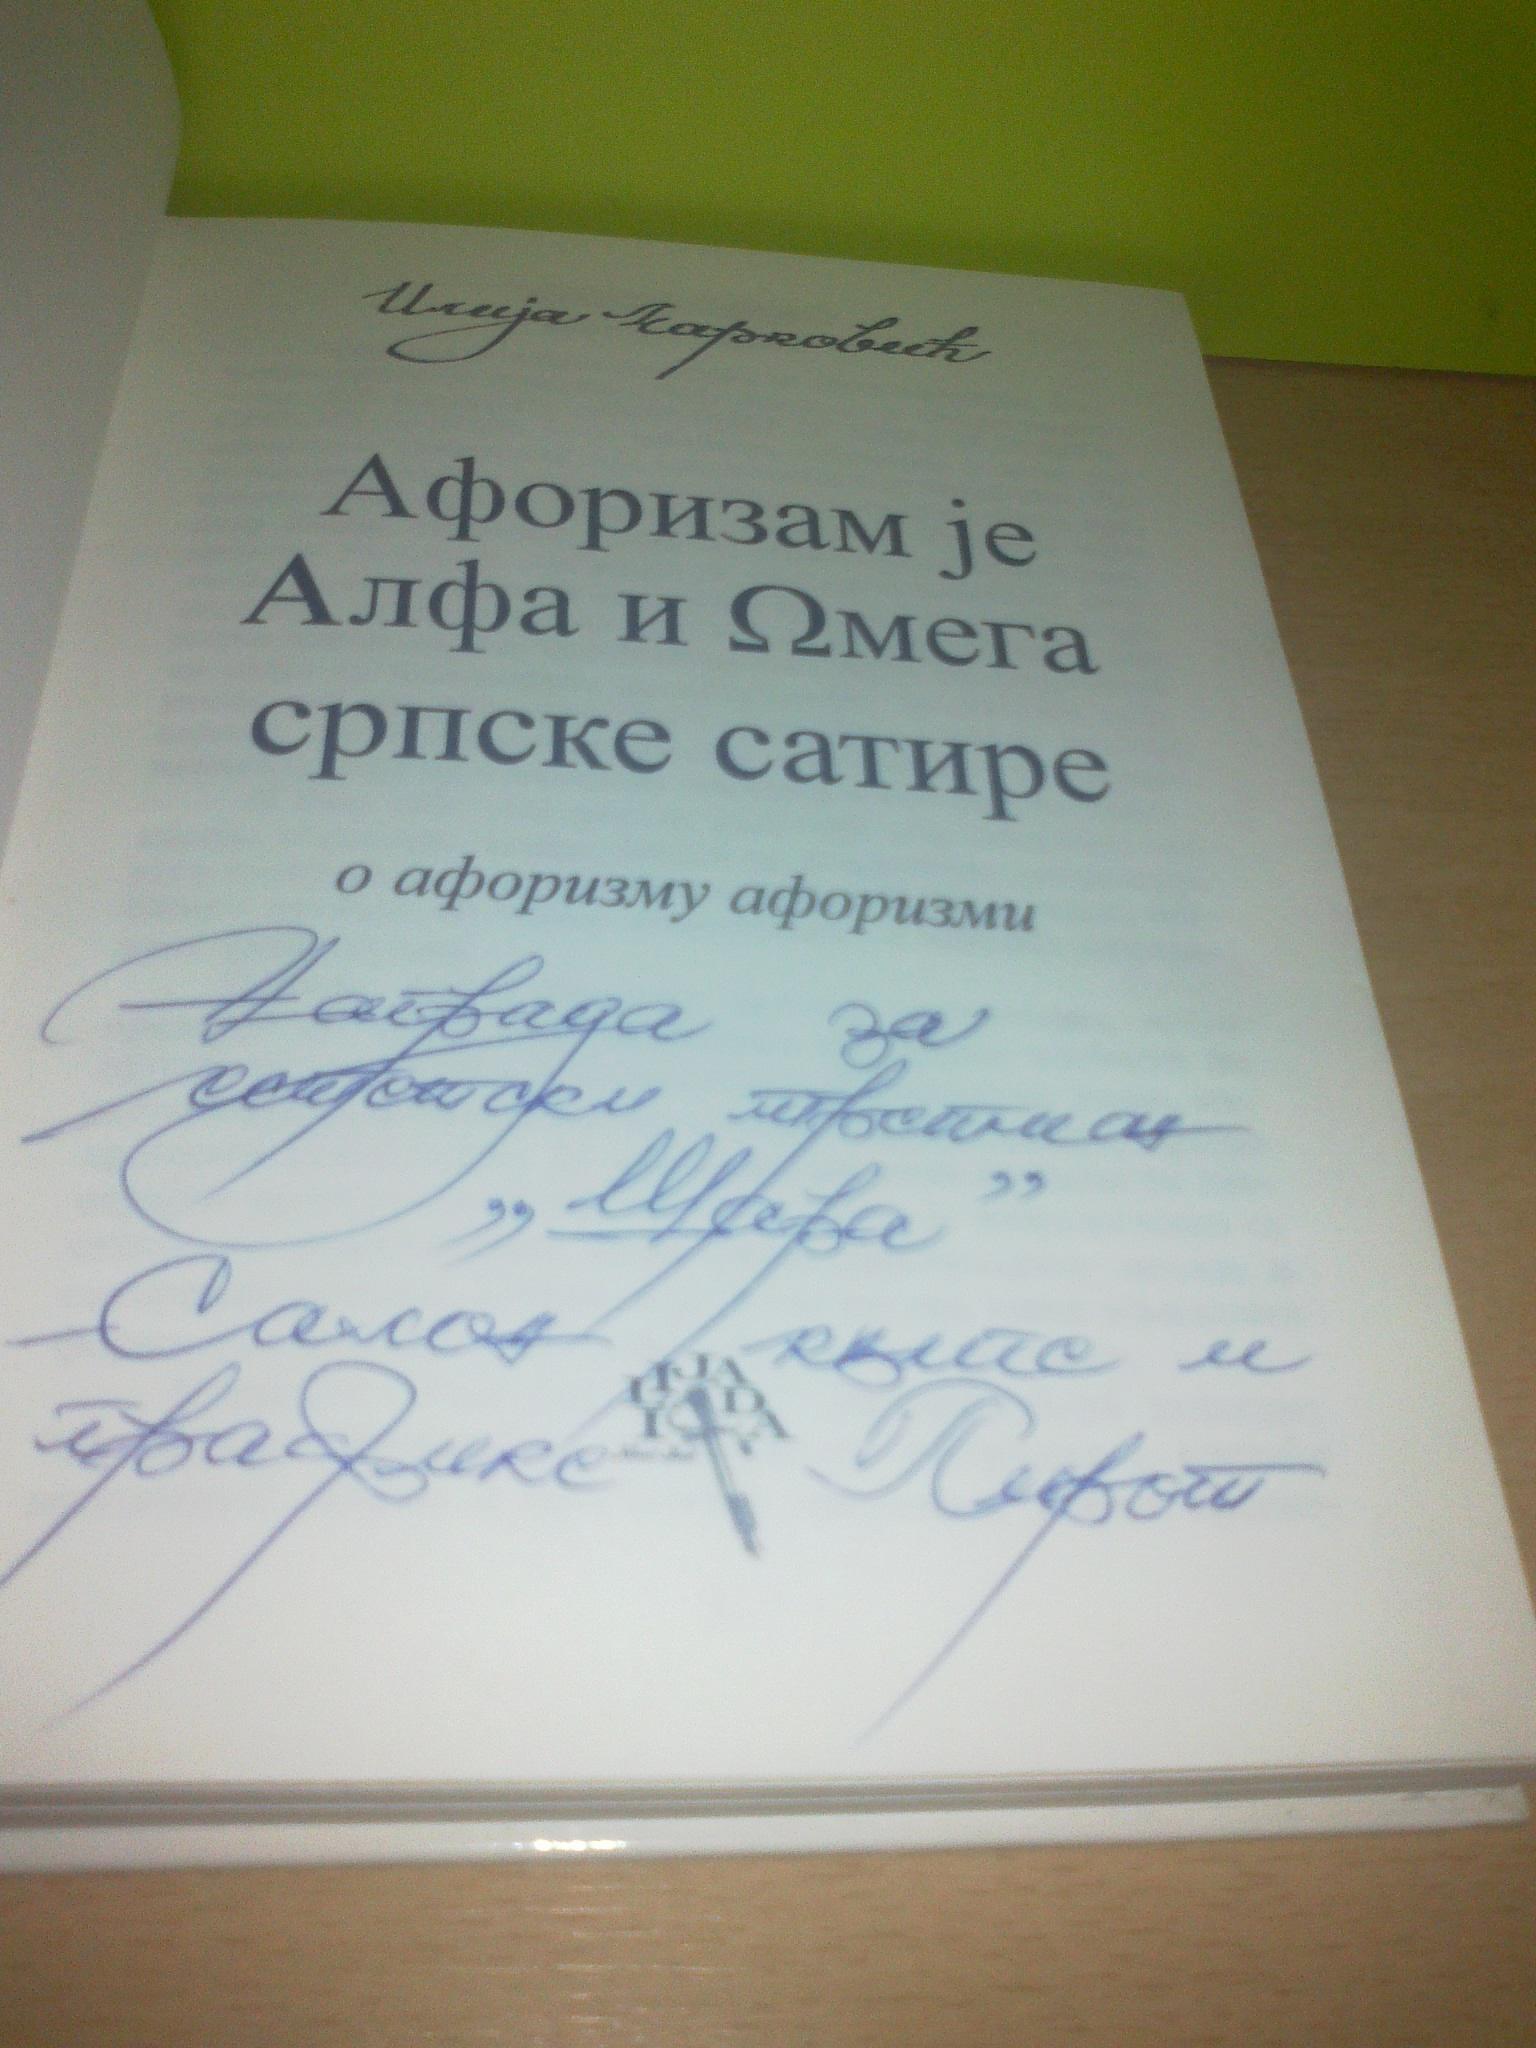 Илија Марковић
Афоризам је
Алфа и Ωмега
српске сатире
о афоризму афоризми
Награда за
сатирски простиак
„Шара”
Салон књиге и
графике Пирот